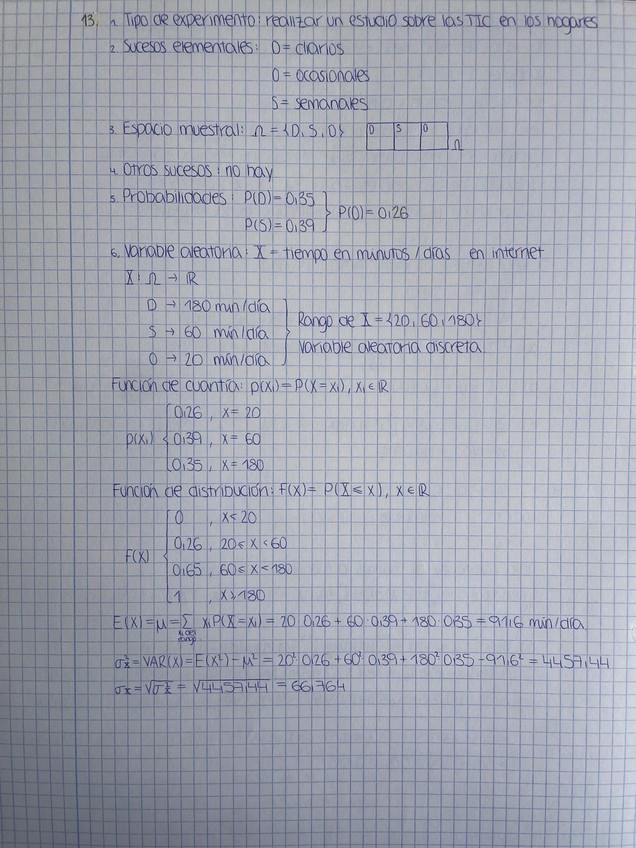 13. 1. Tipo de experimento: realizar un estudio sobre las TIC en los hogares
2. Sucesos elementales: D = diarios
O = ocasionales
S = semanales
3. Espacio muestral: Ω = {D, S, O} D S O Ω
4. Otros sucesos: no hay
5. Probabilidades: P(D) = 0,35
P(S) = 0,39 } P(O) = 0,26
6. Variable aleatoria: X = tiempo en minutos / días en internet
X: Ω → ℝ
D → 180 min/día
S → 60 min/día
O → 20 min/día
Rango de X = {20, 60, 180}
Variable aleatoria discreta
Función de cuantía: p(xᵢ) = P(X = xᵢ), xᵢ ∈ ℝ
p(xᵢ) { 0,26 , x = 20
0,39 , x = 60
0,35 , x = 180
Función de distribución: F(x) = P(X ≤ x), x ∈ ℝ
F(x) { 0 , x < 20
0,26 , 20 ≤ x < 60
0,65 , 60 ≤ x < 180
1 , x ≥ 180
E(X) = μ = Σ xᵢ P(X = xᵢ) = 20·0,26 + 60·0,39 + 180·0,35 = 91,6 min/día
σx² = VAR(X) = E(X²) - μ² = 20²·0,26 + 60²·0,39 + 180²·0,35 - 91,6² = 4457,44
σx = √σx² = √4457,44 = 66,764